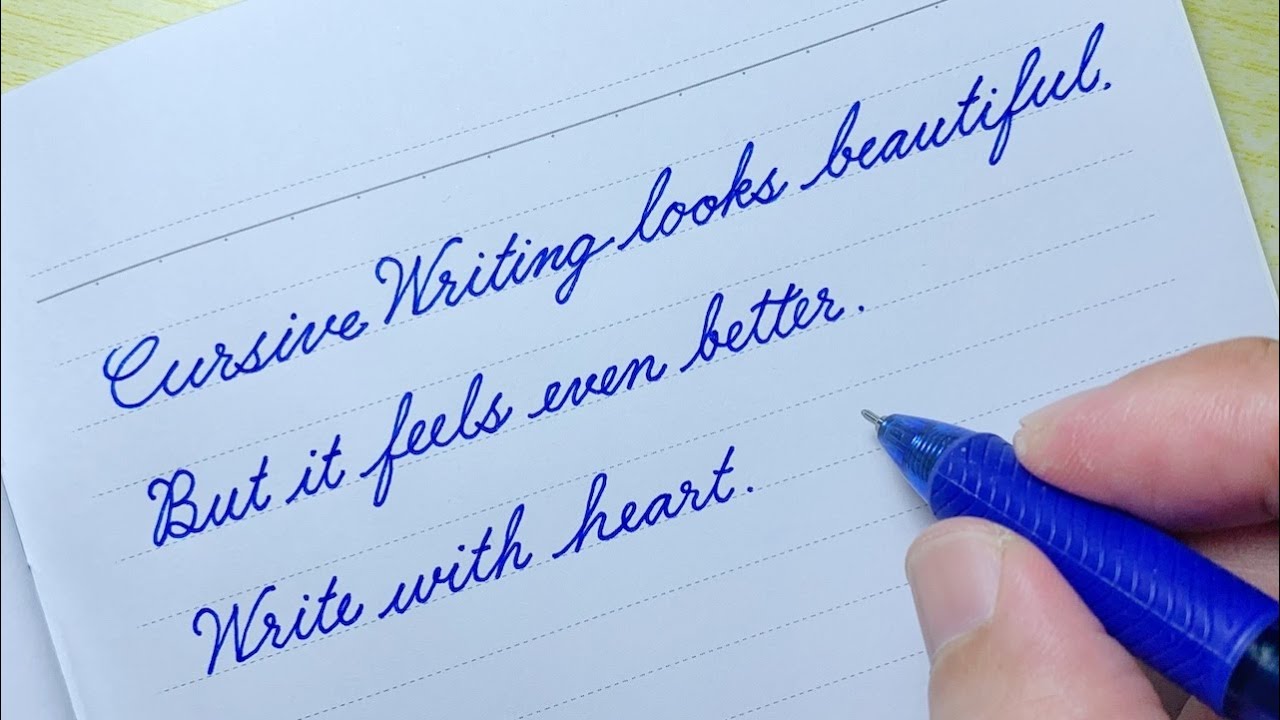 Cursive Writing looks beautiful.
But it feels even better.
Write with heart.